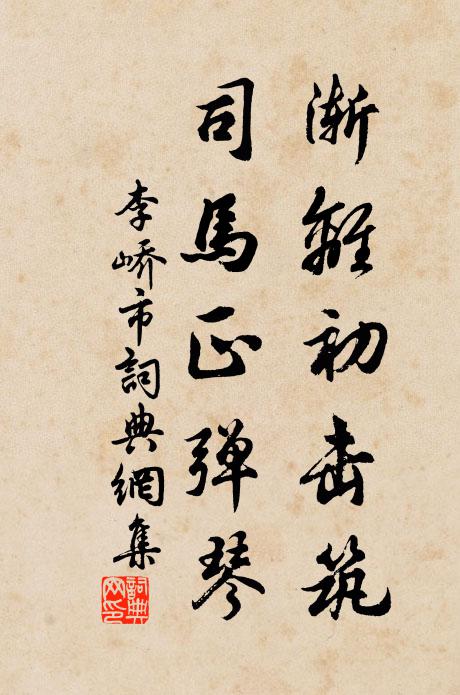 漸離初击筑
司馬正弹琴
李嶠市詞典網集
詞典